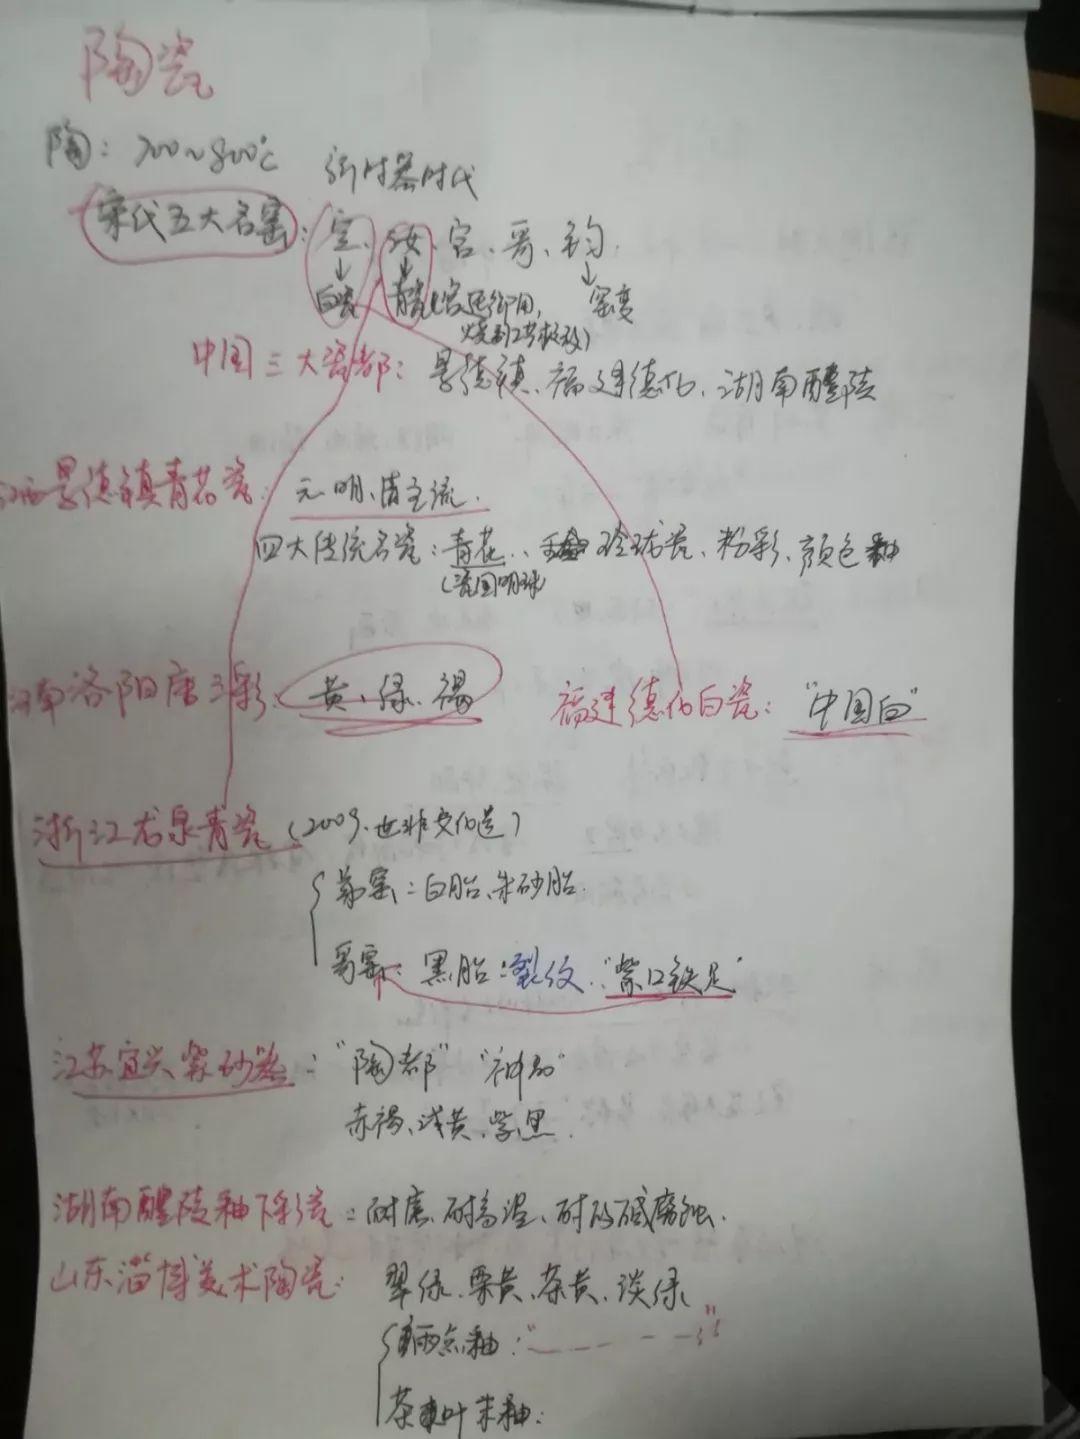 陶瓷
陶：700~800℃ 新时器时代
宋代五大名窑：定、汝、官、哥、钧，
白瓷 青瓷（宫廷御用， 窑变
烧制工艺）
中国三大瓷都：景德镇、福建德化、湖南醴陵
江西景德镇青花瓷：元明、清主流．
四大传统名瓷：青花、玲珑瓷、粉彩、颜色釉
（瓷国明珠）
河南洛阳唐三彩：黄、绿、褐
福建德化白瓷："中国白"
浙江龙泉青瓷（2009、世非文化遗）
弟窑：白胎、朱砂胎．
哥窑：黑胎：裂纹．"紫口铁足"
江苏宜兴紫砂器："陶都"
赤褐、浅黄、紫黑．
湖南醴陵釉下彩瓷：耐磨、耐高温、耐酸碱腐蚀．
山东淄博美术陶瓷：翠绿、栗黄、茶黄、淡绿
雨点釉：
茶叶末釉：